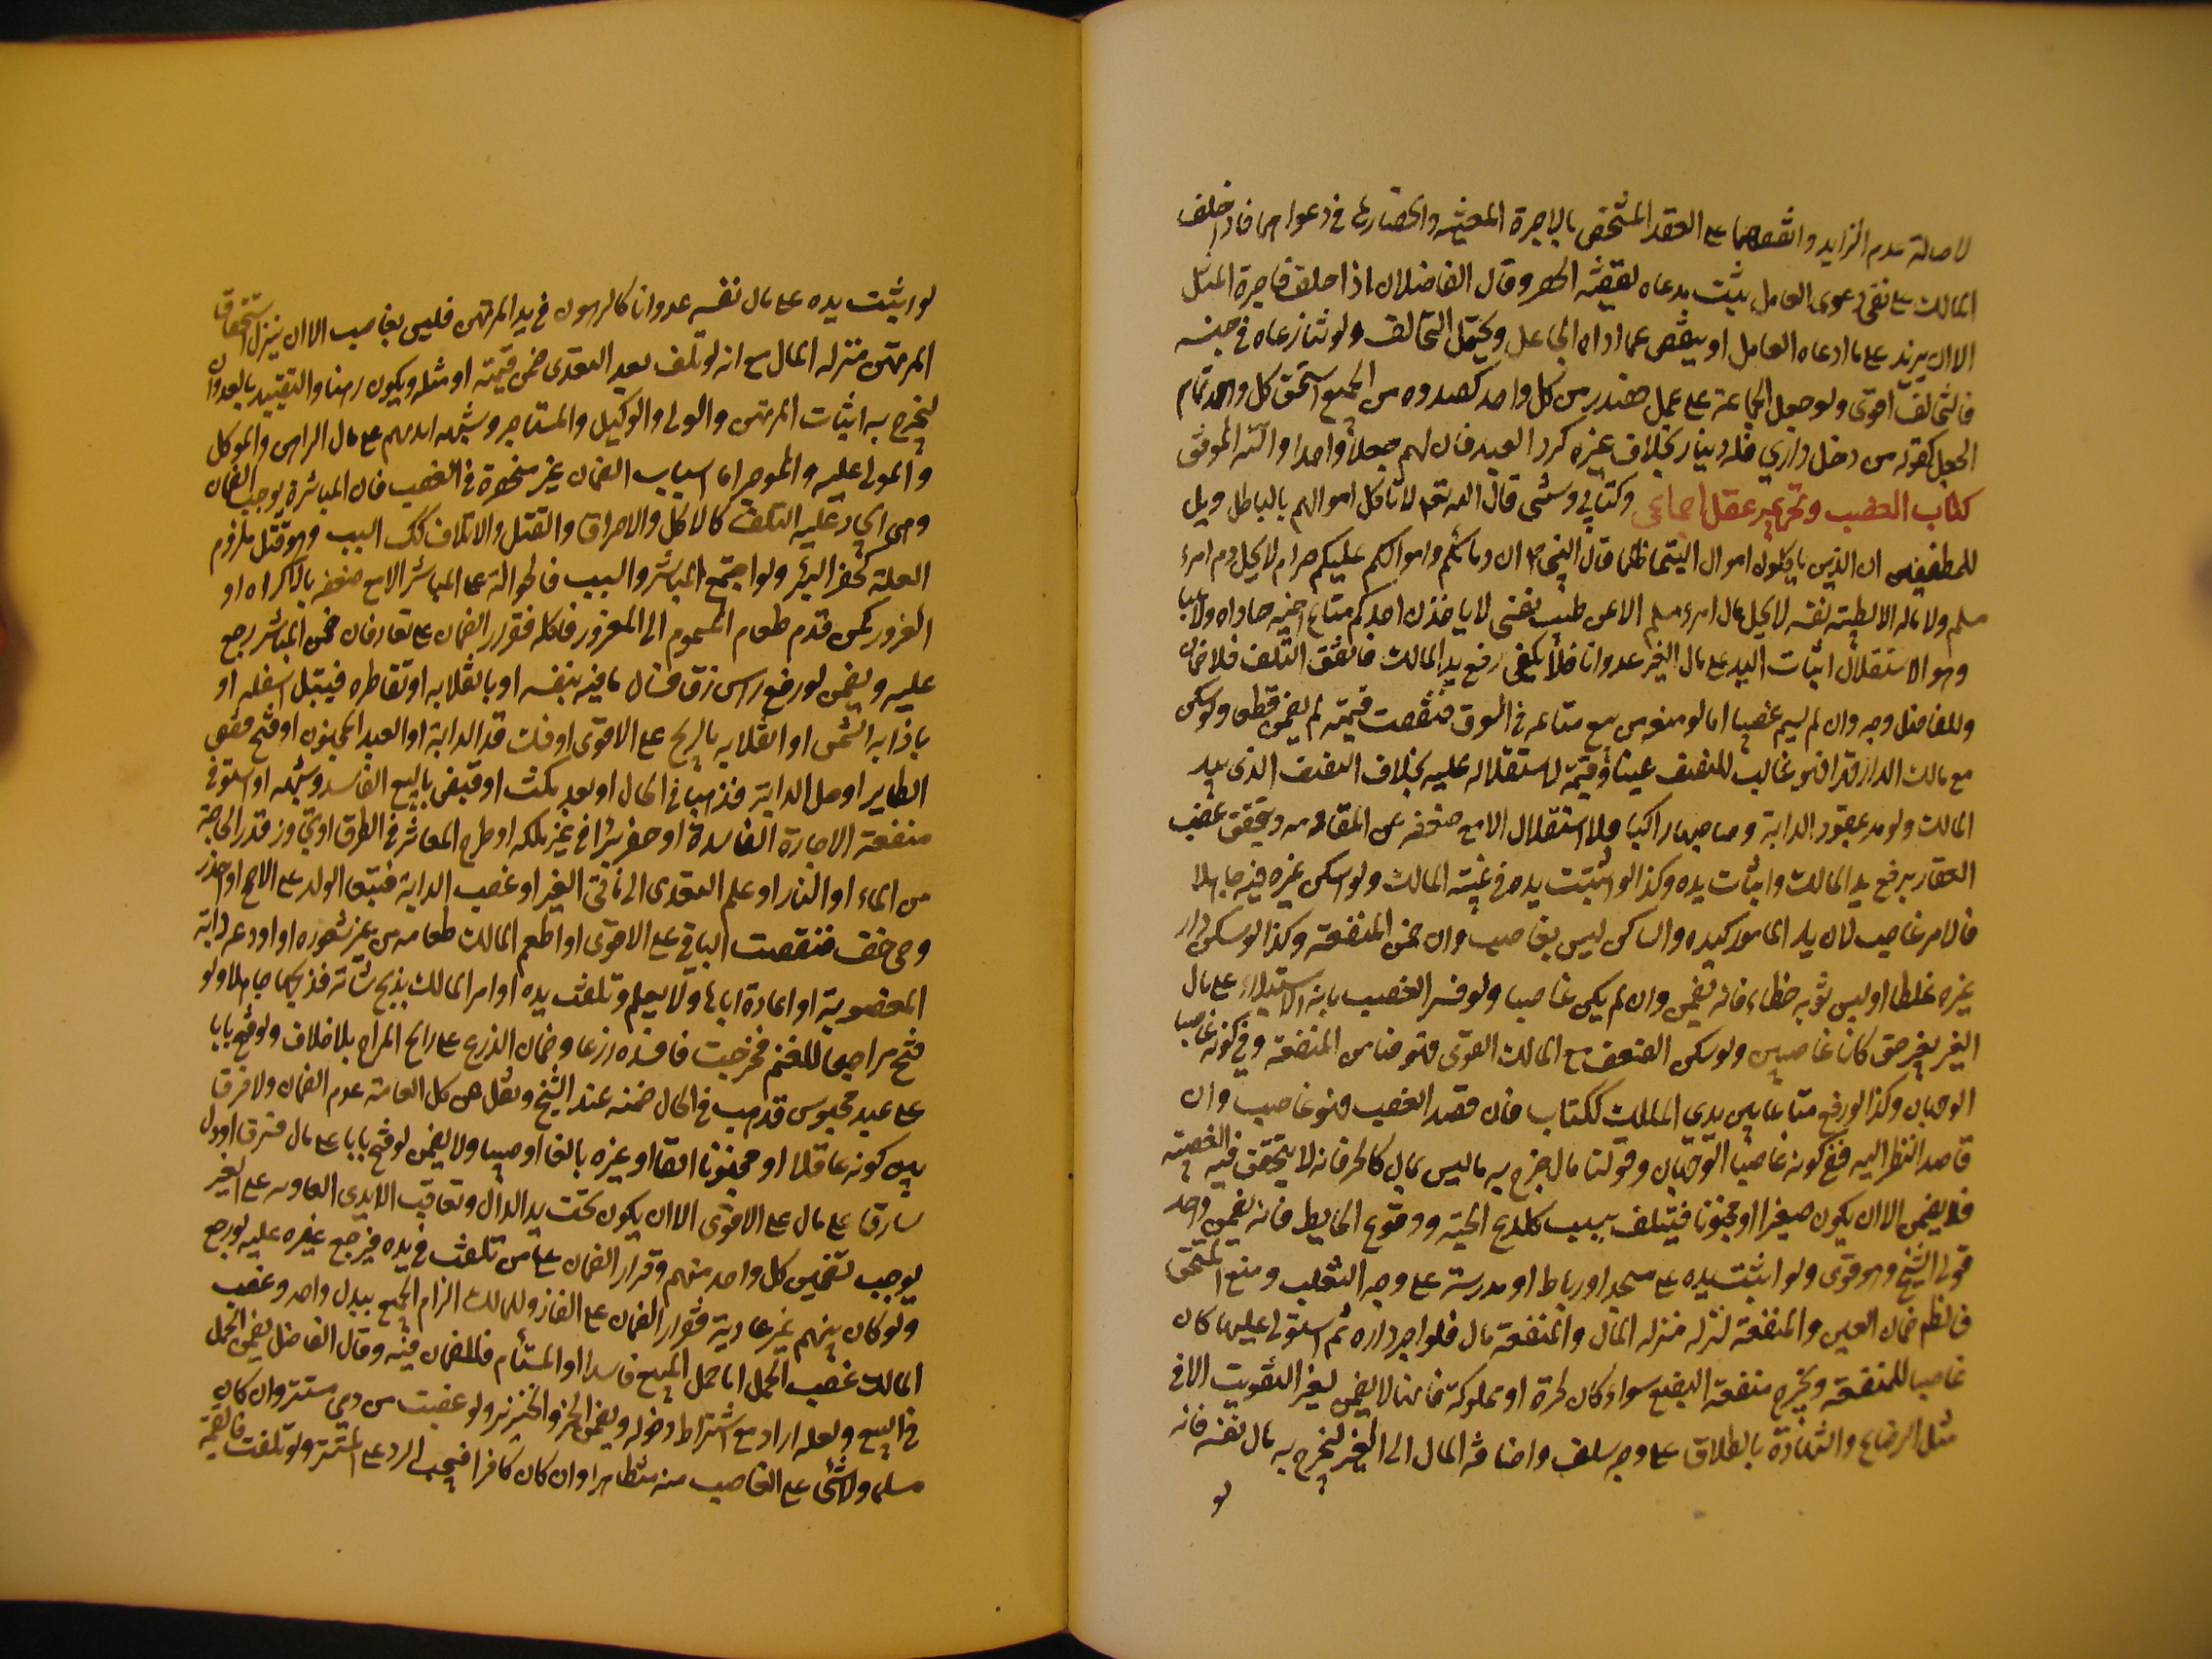 لاصالة عدم الزايد واتفاقهما على العقد المشخص بالاجرة المعينة وانحصارها في دعواهما فاذا حلف
المالك على نفي دعوى العامل يثبت مدعاه لقضية الحصر وقال الفاضلان اذا حلف فاجرة المثل
الا ان يزيد على ما ادعاه العامل او ينقص عما اداه الجاعل ويحتمل التحالف ولو تنازعاه في جنسه
فالتحالف اقوى ولو جعل لجماعة على عمل فصدر من كل واحد كصدوره من الجميع استحق كل واحد تمام
الجعل كقوله من دخل داري فله دينار بخلاف غيره كرد العبد فان لهم جعلا واحدا والله الموفق
كتاب الغصب وتحريمه عقلي اجماعي وكتابي وسنتي قال الله تعالى لا تاكلوا اموالهم بالباطل ويل
للمطففين ان الذين ياكلون اموال اليتامى ظلما قال النبي ان دمائكم واموالكم عليكم حرام لا يحل دم امرء
مسلم ولا ماله الا بطيبة نفسه لا يحل مال امرء مسلم الا عن طيب نفس لا ياخذن احدكم متاع اخيه جادا ولا لاعبا
وهو الاستقلال اثبات اليد على مال الغير عدوانا فلا يكفي رفع يد المالك فاتفق التلف فلا ضمان
وللفاضل وجه وان لم يسم غصبا اما لو منع من بيع متاعه في السوق فنقصت قيمته لم يضمن قطعا ولو سكن
مع مالك الدار قهرا فهو غاصب للنصف عينا وقيمة لاستقلاله عليه بخلاف النصف الذي بيد
المالك ولو مد بمقود الدابة وصاحبها راكبا فلا استقلال الا مع ضعفه عن المقاومة ويتحقق غصب
العقار برفع يد المالك واثبات يده وكذا لو اثبتت يده في غيبة المالك ولو اسكن غيره فيه جاهلا
فالامر غاصب لان يد المامور كيده والساكن ليس بغاصب وان ضمن المنفعة وكذا لو سكن دار
غيره غلطا او لبس ثوبه خطاء فانه يضمن وان لم يكن غاصبا ولو فسر الغصب بانه الاستيلاء على مال
الغير بغير حق كانا غاصبين ولو سكن الضعيف مع المالك القوي فهو ضامن المنفعة وفي كونه غاصبا
الوجهان وكذا لو رفع متاعا بين يدي المالك ككتاب فان قصد الغصب فهو غاصب وان
قاصد النظر اليه ففي كونه غاصبا الوجهان وقولنا مال خرج به ما ليس بمال كالحر فانه لا يتحقق فيه الغصبية
فلا يضمن الا ان يكون صغيرا او مجنونا فيتلف بسبب كلدغ الحية ووقوع الحايط فانه يضمن في احد
قولي الشيخ وهو قوي ولو اثبت يده على مسجد او رباط او مدرسة على وجه التغلب ومنع المستحق
فالظم ضمان العين والمنفعة لنزله منزلة المال والمنفعة مال فلو اجر داره ثم استولى عليها كان
غاصبا للمنفعة ويخرج منفعة البضع سواء كان لحرة او مملوكة فانها لا يضمن بغير التفويت الا في
مثل الرضاع والشهادة بالطلاق على وجه سلف واضافة المال الى الغير ليخرج به مال نفسه فانه
لو
لو اثبت يده على مال نفسه عدوانا كالرهون في يد المرتهن فليس بغاصب الا ان ينزل استحقاق
المرتهن منزلة المال مع انه لو تلف بعد التعدي ضمن قيمته او مثله ويكون رهنا والتقييد بالعدوان
ليخرج به اثبات المرتهن والولي والوكيل والمستاجر وشبهه ايديهم على مال الراهن والموكل
والمولى عليه والموجر اما اسباب الضمان غير منحصرة في الغصب فان المباشرة يوجب الضمان
وهي ايجاد علته التلف كالاكل والاحراق والقتل والاتلاف كك السبب وهو فعل ملزوم
العلة كحفر البئر ولو اجتمع المباشر والسبب فالحوالة على المباشر الا مع ضعفه بالاكراه او
الغرور كمن قدم طعام المسموم الى المغرور فاكله فقرار الضمان على تعارفان ضمن المباشر رجع
عليه ويضمن لو رفع راس زق فسال ما فيه بنفسه او بانقلابه او تقاطره فيبتل اسفله او
باذابه الشمس او انقلابه بالريح على الاقوى او فلت قيد الدابة او العبد المجنون او فتح قفص
الطاير او حل الدابة فذهبا في الحال او بعد مكث او قبض بالبيع الفاسد وشبهه او استوفى
منفعة الاجارة الفاسدة او حفر بئرا في غير ملكه او طرح المعاثر في الطرق او تجاوز قدر الحاجة
من الماء او النار او علم التعدي الى نافي الغير او غصب الدابة فتبعها الولد على الاصح او اخذ زر
وهي خف فنقصت الباقي على الاقوى او اطعم المالك طعامه من غير شعوره او اودعه دابة
المغصوبة او اعادة اياها ولا يعلم وتلفت بيده او امر المالك بذبح شاة فذبحها جاهلا ولو
فتح مراحها للغنم فخرجت فافسده زرعا وضمان الزرع على رائح المراح بلا خلاف ولو فتح بابا
على عبد محبوس فذهب في الحال ضمنه عند الشيخ ونقل عن كل العامة عدم الضمان ولا فرق
بين كونه عاقلا او مجنونا ابقا او غيره بالغا او صبيا ولا يضمن لو فتح بابا على مال فسرق او دل
سارقا على مال على الاقوى الا ان يكون تحت يد الدال وتعاقب الايدي العادية على الغير
يوجب تضمين كل واحد منهم وقرار الضمان على من تلفت في يده فيرجع غيره عليه لو رجع
ولو كان بينهم غير عادية فقرار الضمان على الغار وللمالك الزام الجميع ببدل واحد وغصب
المالك غصب الحمل اما حمل المبيع فاسدا او المستام فالضمان فيه وقال الفاضل يضمن الحمل
في البيع ولعله اراد مع اشتراط دخوله ويضمن الخمر والخنزير ولو غصبت من ذمي مستتر وان كان
مسلما ولا شئ على الغاصب منه متظاهرا وان كان كافرا فيجب الرد على المستتر ولو تلفت فالقيمة